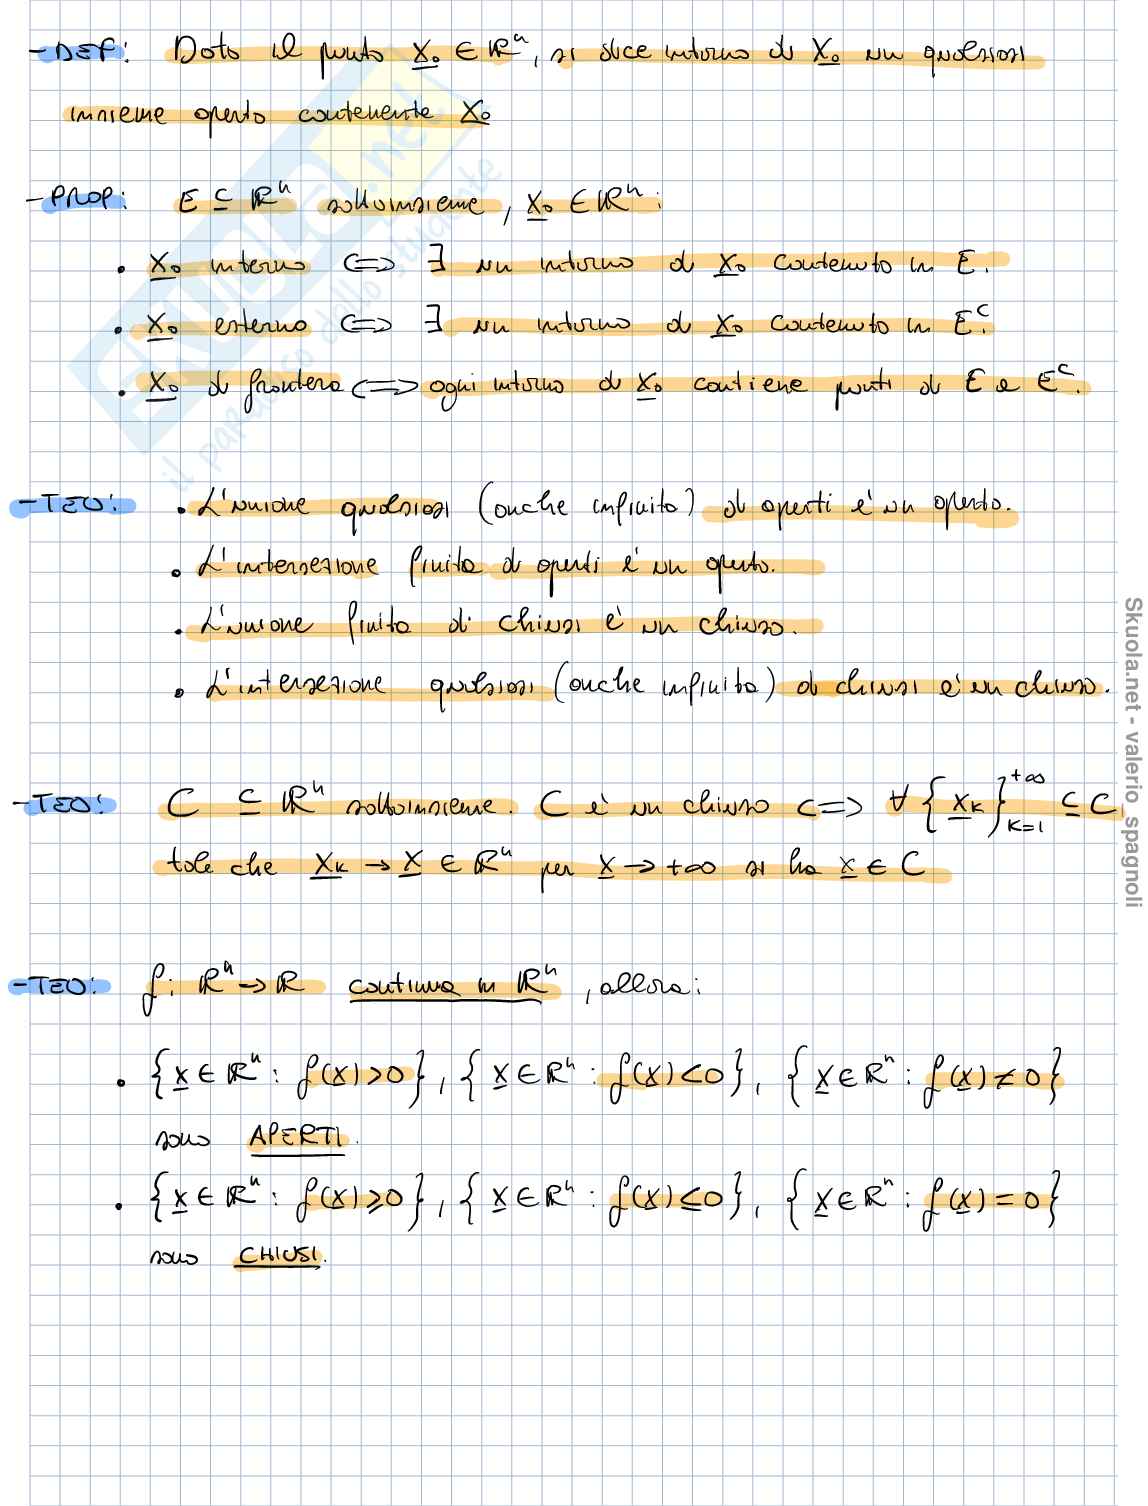 - DEF: Dato il punto x₀ ∈ ℝⁿ, si dice intorno di x₀ un qualsiasi
insieme aperto contenente x₀
- PROP: E ⊆ ℝⁿ sottoinsieme, x₀ ∈ ℝⁿ:
• x₀ interno <=> ∃ un intorno di x₀ contenuto in E.
• x₀ esterno <=> ∃ un intorno di x₀ contenuto in Eᶜ.
• x₀ di frontera <=> ogni intorno di x₀ contiene punti di E e Eᶜ.
- TEO: • L'unione qualsiasi (anche infinita) di aperti è un aperto.
• L'intersezione finita di aperti è un aperto.
• L'unione finita di chiusi è un chiuso.
• L'intersezione qualsiasi (anche infinita) di chiusi è un chiuso.
- TEO: C ⊆ ℝⁿ sottoinsieme. C è un chiuso <=> ∀ {x_k}_{k=1}^{+∞} ⊆ C
tale che x_k → x ∈ ℝⁿ per x → +∞ si ha x ∈ C
- TEO: f: ℝⁿ → ℝ continua in ℝⁿ, allora:
• {x ∈ ℝⁿ : f(x) > 0}, {x ∈ ℝⁿ : f(x) < 0}, {x ∈ ℝⁿ : f(x) ≠ 0}
sono APERTI.
• {x ∈ ℝⁿ : f(x) ⩾ 0}, {x ∈ ℝⁿ : f(x) ≤ 0}, {x ∈ ℝⁿ : f(x) = 0}
sono CHIUSI.
SKUOLA.net
il paradiso dello studente
Skuola.net - valerio_spagnoli